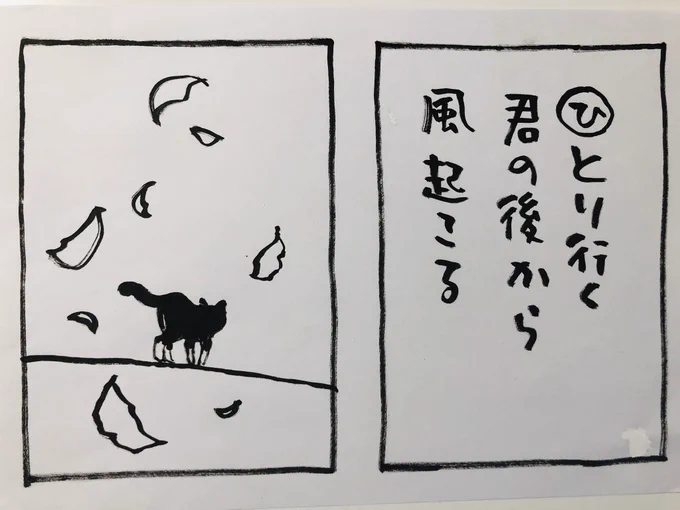 ひとり行く
君の後から
風起こる